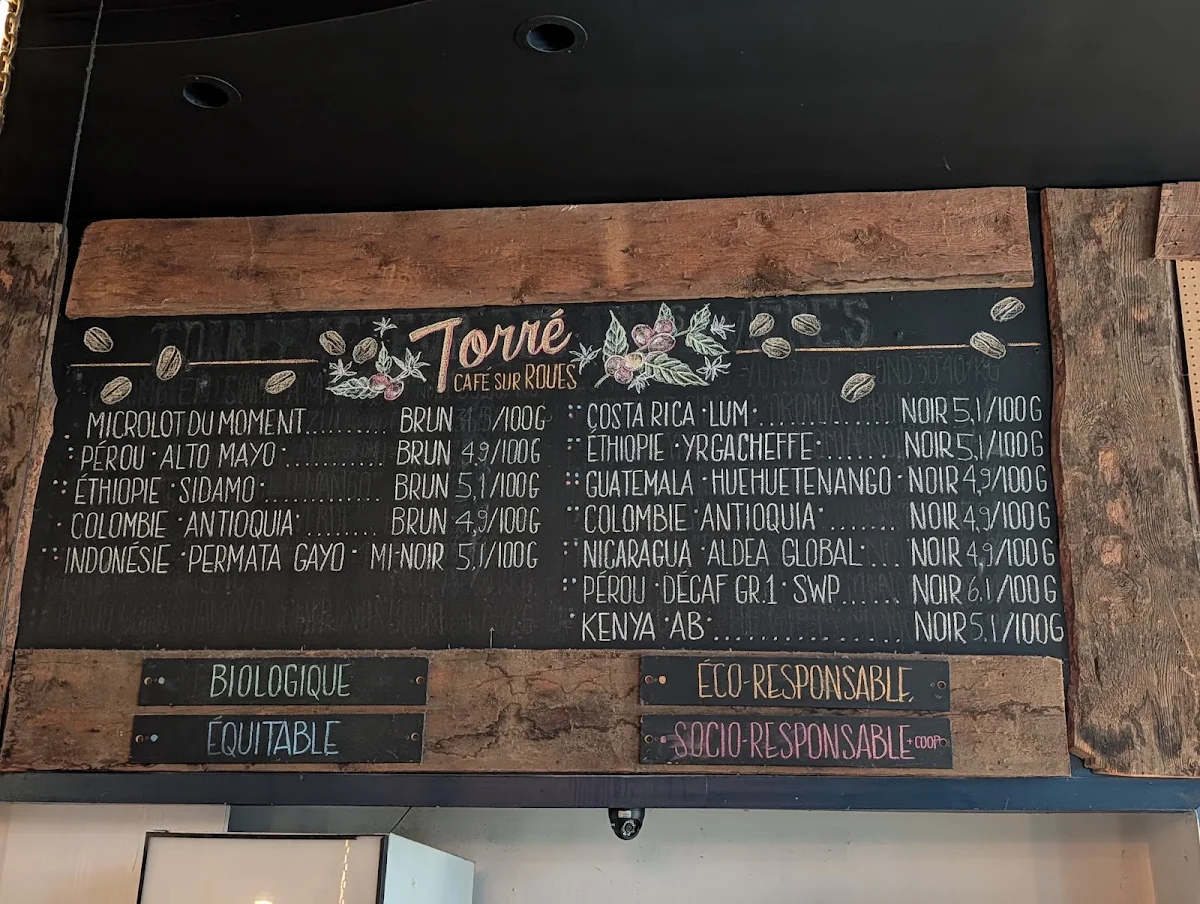 Torré
CAFÉ SUR ROUES
MICROLOT DU MOMENT......... BRUN /100G
PÉROU · ALTO MAYO ............ BRUN 4,9/100G
ÉTHIOPIE · SIDAMO · ............ BRUN 5,1/100G
COLOMBIE · ANTIOQUIA · ......... BRUN 4,9/100G
INDONÉSIE · PERMATA GAYO · MI-NOIR 5,1/100G
COSTA RICA · LUM · .............. NOIR 5,1/100G
ÉTHIOPIE · YRGACHEFFE · ........ NOIR 5,1/100G
GUATEMALA · HUEHUETENANGO · NOIR 4,9/100G
COLOMBIE · ANTIOQUIA · ....... NOIR 4,9/100G
NICARAGUA · ALDEA GLOBAL · ... NOIR 4,9/100G
PÉROU · DÉCAF GR.1 · SWP...... NOIR 6,1/100G
KENYA · AB · .................. NOIR 5,1/100G
BIOLOGIQUE
ÉQUITABLE
ÉCO-RESPONSABLE
SOCIO-RESPONSABLE · COOP